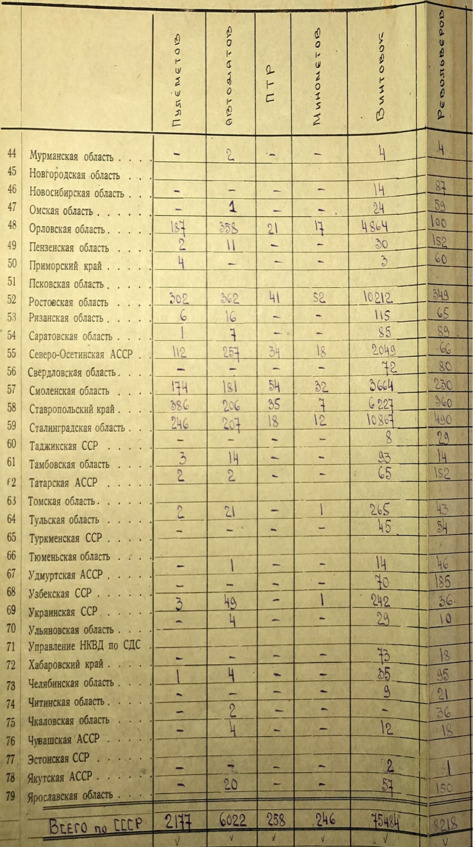 Пулеметов Автоматов ПТР Минометов Винтовок Револьверов
44 Мурманская область . . . - 2 - - 4 4
45 Новгородская область . . .
46 Новосибирская область . . - - - - 14 87
47 Омская область . . . . . - 1 - - 24 59
48 Орловская область . . . . 187 358 21 17 4864 100
49 Пензенская область . . . 2 11 - - 30 152
50 Приморский край . . . . 4 - - - 3 60
51 Псковская область . . . .
52 Ростовская область . . . . 302 362 41 52 10212 349
53 Рязанская область . . . . 6 16 - - 115 65
54 Саратовская область . . . 1 7 - - 85 89
55 Северо-Осетинская АССР . 112 257 34 18 2049 66
56 Свердловская область . . . - - - - 72 80
57 Смоленская область . . . 174 181 54 32 3664 230
58 Ставропольский край . . . 386 206 35 7 6227 360
59 Сталинградская область . . 246 207 18 12 10867 490
60 Таджикская ССР . . . . . - - - - 8 29
61 Тамбовская область . . . . 3 14 - - 93 14
62 Татарская АССР . . . . . 2 2 - - 65 152
63 Томская область . . . . .
64 Тульская область . . . . 2 21 - 1 265 43
65 Туркменская ССР . . . . - - - - 45 54
66 Тюменьская область . . .
67 Удмуртская АССР . . . . - 1 - - 14 46
68 Узбекская ССР . . . . . - - - - 70 185
69 Украинская ССР . . . . . 3 49 - 1 242 36
70 Ульяновская область . . . - 4 - - 29 10
71 Управление НКВД по СДС
72 Хабаровский край . . . . - - - - 73 18
73 Челябинская область . . . 1 4 - - 35 95
74 Читинская область . . . . - - - - 9 21
75 Чкаловская область . . . - 2 - - - 36
76 Чувашская АССР . . . . . - 4 - - 12 18
77 Эстонская ССР . . . . .
78 Якутская АССР . . . . . - - - - 2 1
79 Ярославская область . . . - 20 - - 57 150
Всего по СССР 2177 6022 258 246 75484 8218